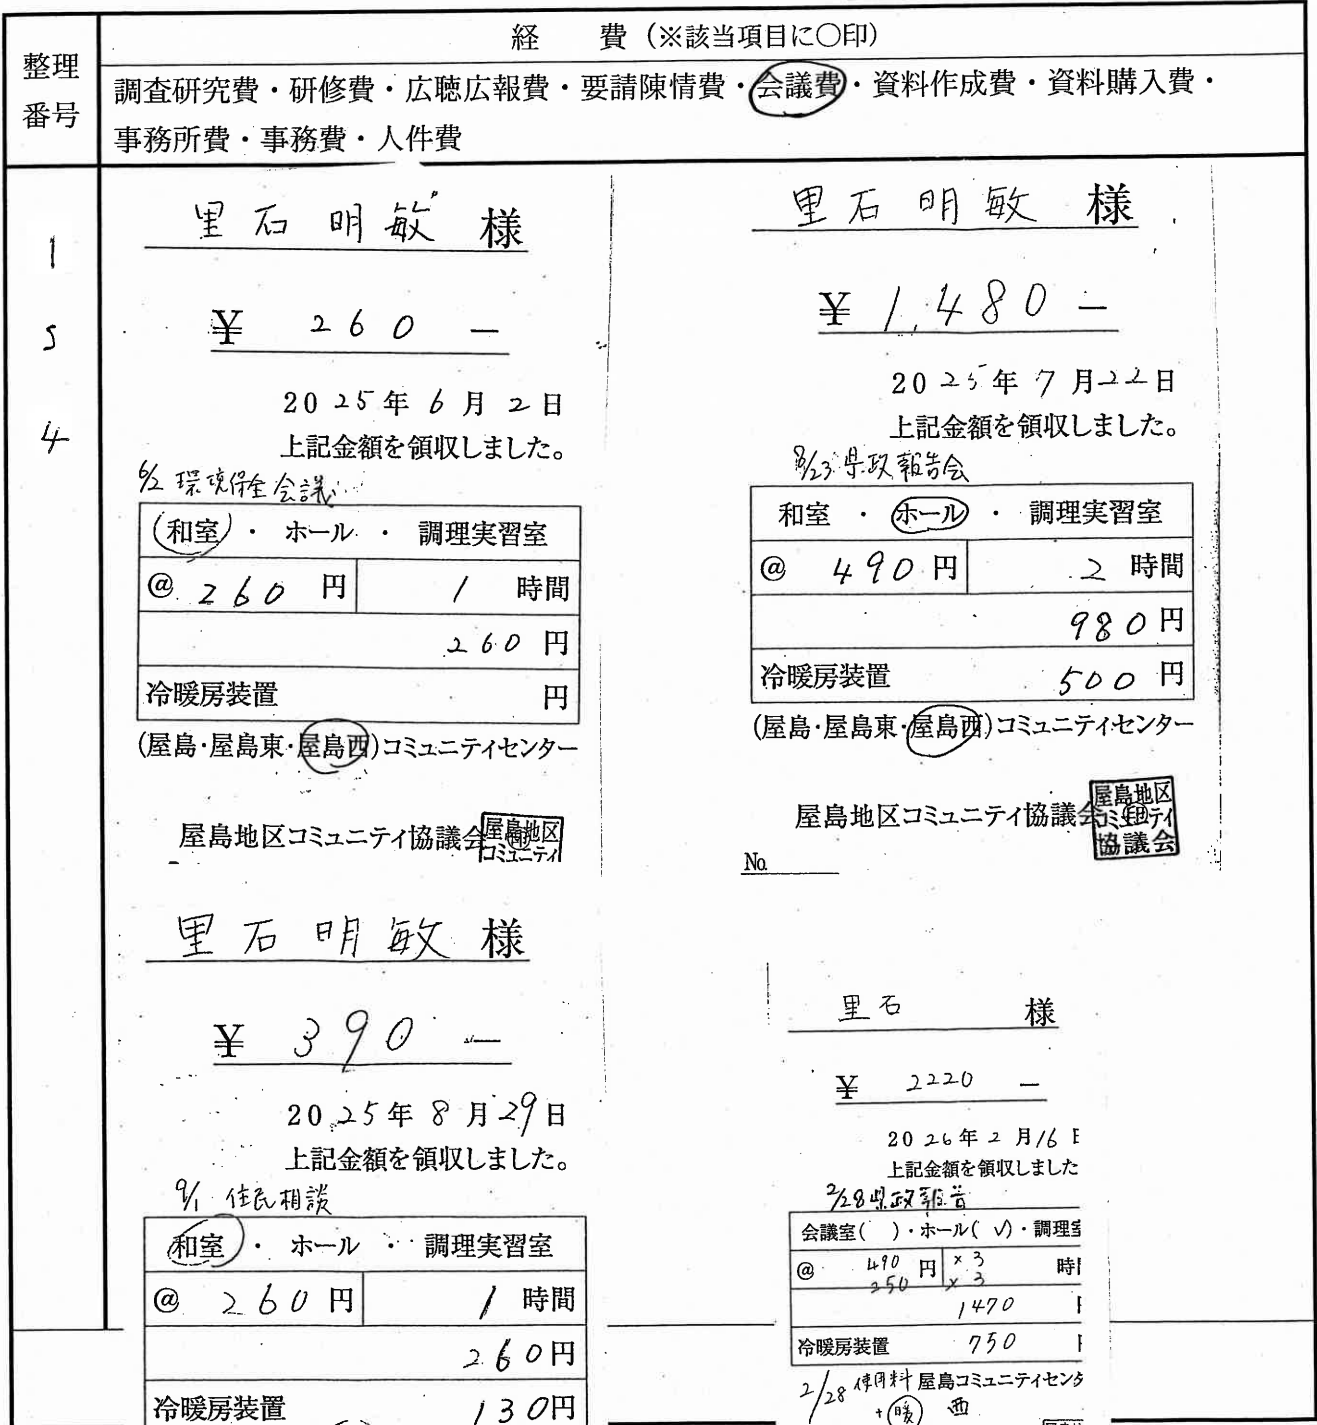 整理番号
経 費（※該当項目に〇印）
調査研究費・研修費・広聴広報費・要請陳情費・会議費・資料作成費・資料購入費・
事務所費・事務費・人件費
154
里石明敏 様
¥ 260 —
2025年6月2日
上記金額を領収しました。
6/2 環境保全会議
(和室)・ホール・調理実習室
@ 260円 1時間
260円
冷暖房装置 円
(屋島・屋島東・屋島西)コミュニティセンター
屋島地区コミュニティ協議会
屋島地区
コミュニティ
里石明敏 様
¥ 1,480 —
2025年7月22日
上記金額を領収しました。
8/23 県政報告会
和室・ホール・調理実習室
@ 490円 2時間
980円
冷暖房装置 500円
(屋島・屋島東・屋島西)コミュニティセンター
屋島地区コミュニティ協議会
屋島地区
コミュニティ
協議会
No.
里石明敏 様
¥ 390 —
2025年8月29日
上記金額を領収しました。
9/1 住民相談
和室・ホール・調理実習室
@ 260円 1時間
260円
冷暖房装置 130円
里石 様
¥ 2220 —
2026年2月16日
上記金額を領収しました
2/28県政報告
会議室( )・ホール(✓)・調理室
@ 490円 ×3 時
250 ×3
1470
冷暖房装置 750
2/28 使用料 屋島コミュニティセンタ
+暖 西